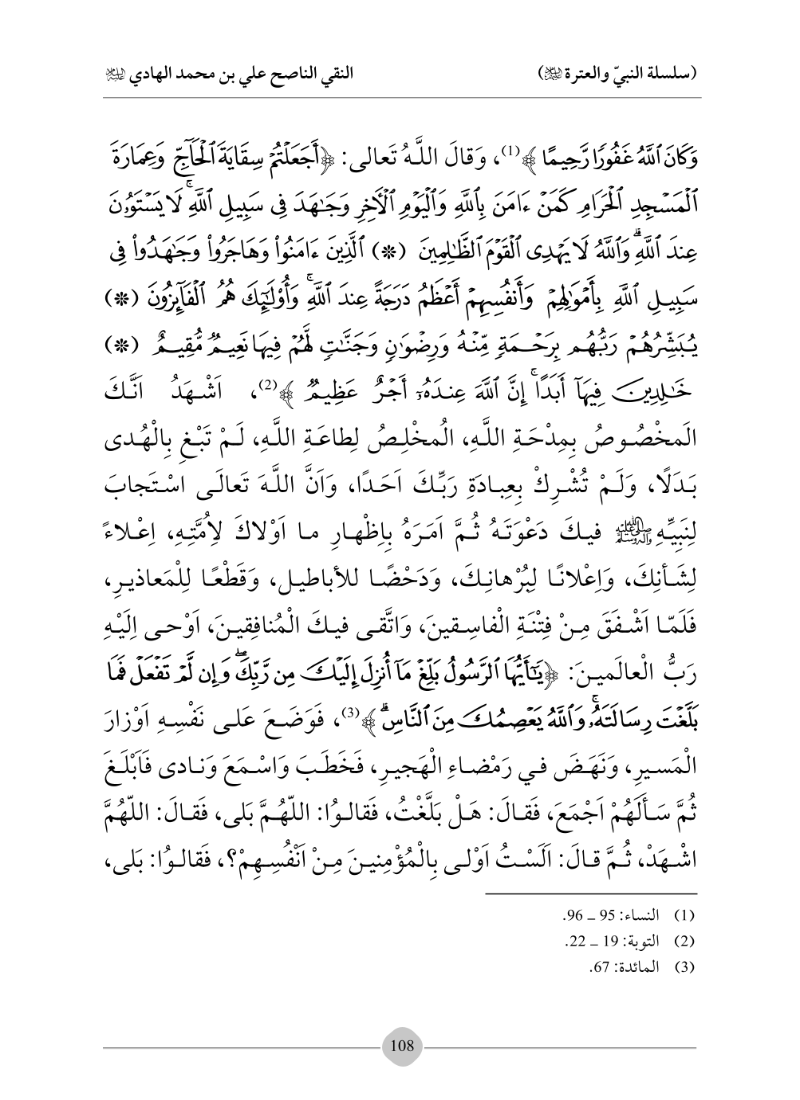 (سلسلة النبيّ والعترة ﷺ) النقي الناصح علي بن محمد الهادي
وَكَانَ ٱللَّهُ غَفُورٗا رَّحِيمًا ﴾(1)، وَقالَ اللَّـهُ تَعالى: ﴿أَجَعَلۡتُمۡ سِقَايَةَ ٱلۡحَآجِّ وَعِمَارَةَ
ٱلۡمَسۡجِدِ ٱلۡحَرَامِ كَمَنۡ ءَامَنَ بِٱللَّهِ وَٱلۡيَوۡمِ ٱلۡأٓخِرِ وَجَٰهَدَ فِي سَبِيلِ ٱللَّهِۚ لَا يَسۡتَوُۥنَ
عِندَ ٱللَّهِۗ وَٱللَّهُ لَا يَهۡدِي ٱلۡقَوۡمَ ٱلظَّٰلِمِينَ (*) ٱلَّذِينَ ءَامَنُواْ وَهَاجَرُواْ وَجَٰهَدُواْ فِي
سَبِيلِ ٱللَّهِ بِأَمۡوَٰلِهِمۡ وَأَنفُسِهِمۡ أَعۡظَمُ دَرَجَةً عِندَ ٱللَّهِۚ وَأُوْلَٰٓئِكَ هُمُ ٱلۡفَآئِزُونَ (*)
يُبَشِّرُهُمۡ رَبُّهُم بِرَحۡمَةٖ مِّنۡهُ وَرِضۡوَٰنٖ وَجَنَّٰتٖ لَّهُمۡ فِيهَا نَعِيمٞ مُّقِيمٞ (*)
خَٰلِدِينَ فِيهَآ أَبَدًاۚ إِنَّ ٱللَّهَ عِندَهُۥٓ أَجۡرٌ عَظِيمٞ ﴾(2)، اَشْهَدُ اَنَّكَ
الَمخْصُوصُ بِمِدْحَةِ اللَّـهِ، الُمخْلِصُ لِطاعَةِ اللَّـهِ، لَـمْ تَبْـغِ بِالْهُـدى
بَـدَلًا، وَلَـمْ تُشْـرِكْ بِعِبـادَةِ رَبِّـكَ اَحَـدًا، وَاَنَّ اللَّـهَ تَعالَـى اسْـتَجابَ
لِنَبِيِّـهِ ﷺ فيـكَ دَعْوَتَـهُ ثُـمَّ اَمَـرَهُ بِاِظْهـارِ مـا اَوْلاكَ لِاُمَّتِـهِ، اِعْـلاءً
لِشَـأنِكَ، وَاِعْلانًـا لِبُرْهانِـكَ، وَدَحْضًـا لِلأباطيـلِ، وَقَطْعًـا لِلْمَعاذيـرِ،
فَلَمّـا اَشْـفَقَ مِـنْ فِتْنَـةِ الْفاسِـقينَ، وَاتَّقـى فيـكَ الْمُنافِقيـنَ، اَوْحـى اِلَيْـهِ
رَبُّ الْعالَميـنَ: ﴿يَٰٓأَيُّهَا ٱلرَّسُولُ بَلِّغۡ مَآ أُنزِلَ إِلَيۡكَ مِن رَّبِّكَۖ وَإِن لَّمۡ تَفۡعَلۡ فَمَا
بَلَّغۡتَ رِسَالَتَهُۥۚ وَٱللَّهُ يَعۡصِمُكَ مِنَ ٱلنَّاسِۗ ﴾(3)، فَوَضَـعَ عَلـى نَفْسِـهِ اَوْزارَ
الْمَسـيرِ، وَنَهَـضَ فـي رَمْضـاءِ الْهَجيـرِ، فَخَطَـبَ وَاسْـمَعَ وَنـادى فَاَبْلَـغَ
ثُمَّ سَـأَلَهُمْ اَجْمَعَ، فَقـالَ: هَـلْ بَلَّغْتُ، فَقالـوُا: اللّهُـمَّ بَلى، فَقـالَ: اللّهُمَّ
اشْـهَدْ، ثُـمَّ قـالَ: اَلَسْـتُ اَوْلـى بِالْمُؤْمِنيـنَ مِـنْ اَنْفُسِـهِمْ؟، فَقالـوُا: بَلى،
(1) النساء: 95 ـ 96.
(2) التوبة: 19 ـ 22.
(3) المائدة: 67.
108